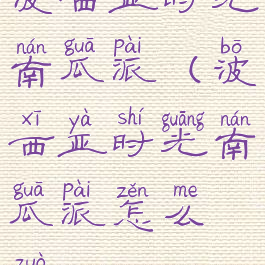 波西亚时光
nán guā pài bō
南瓜派（波
xī yà shí guāng nán
西亚时光南
guā pài zěn me
瓜派怎么
zuò